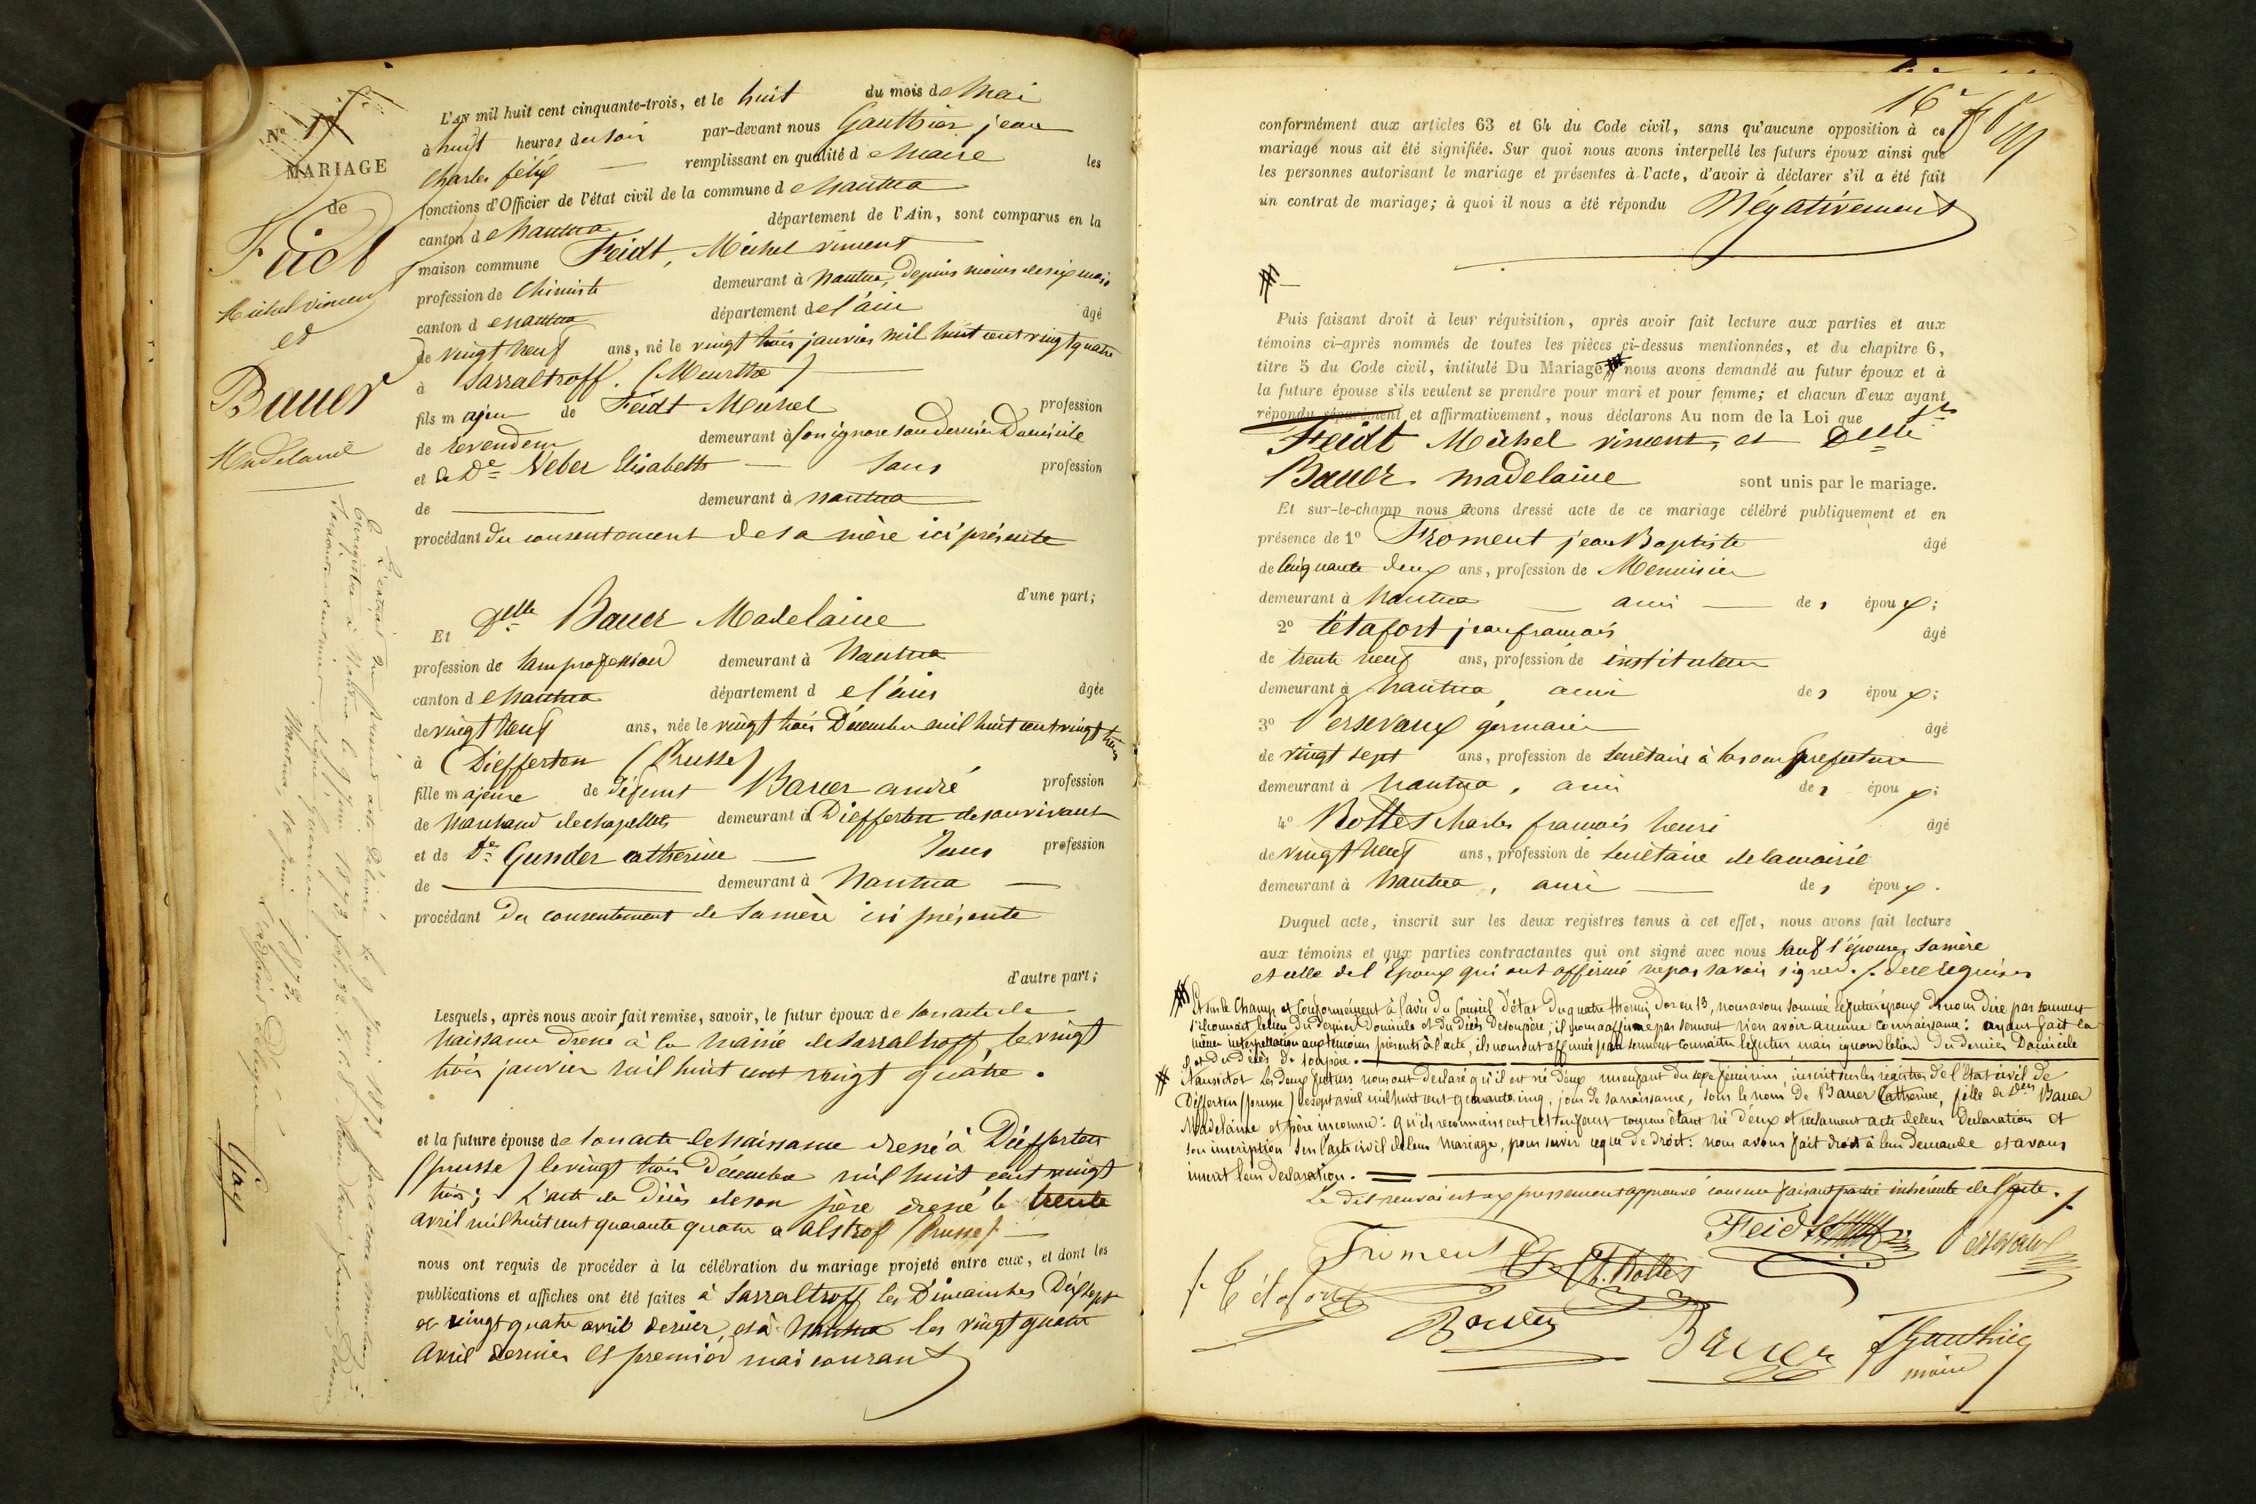 N° 17
MARIAGE
de
Feidt
Michel vincent
et
Bauer
Madelaine
L'AN mil huit cent cinquante-trois, et le huit du mois de Mai
à huit heures du soir par-devant nous Gauthier jean
Charles félix remplissant en qualité de Maire les
fonctions d'Officier de l'état civil de la commune de Nantua
canton de Nantua département de l'Ain, sont comparus en la
maison commune Feidt, Michel vincent
profession de Chimiste demeurant à Nantua, depuis moins de six mois
canton de Nantua département de l'ain âgé
de vingt neuf ans, né le vingt trois janvier mil huit cent vingt quatre
à Sarraltroff. (Meurthe)
fils majeur de Feidt Michel profession
de revendeur demeurant à l'on ignore son dernier Domicile
et de De Veber Elisabeth sans profession
de demeurant à Nantua
procédant du consentement de sa mère ici présente
d'une part;
Et Delle Bauer Madelaine
profession de sans profession demeurant à Nantua
canton de Nantua département de l'ain âgée
de vingt neuf ans, née le vingt trois Décembre mil huit cent vingt trois
à Diefferten (Prusse)
fille majeure de défunt Bauer andré profession
de Marchand de chapellets demeurant à Diefferten de son vivant
et de De Gunder catherine sans profession
de demeurant à Nantua
procédant Du consentement de sa mère ici présente
d'autre part;
Lesquels, après nous avoir fait remise, savoir, le futur époux de son acte de
Naissance dressé à la Mairie de Sarraltroff, le vingt
trois janvier mil huit cent vingt quatre.
et la future épouse de son acte de Naissance dressé à Diefferten
(prusse) le vingt trois décembre mil huit cent vingt
trois; L'acte de Décès de son père dressé le trente
avril mil huit cent quarante quatre a alstrof (Prusse)
nous ont requis de procéder à la célébration du mariage projeté entre eux, et dont les
publications et affiches ont été faites à Sarraltroff les Dimanches Dix sept
et vingt quatre avril dernier, et à Nantua les vingt quatre
Avril dernier et premier mai courant
L'extrait du présent acte délivré le 9 juin 1873
Enregistré à Nantua le 9 juin 1873
Nantua, 10 juin 1873.
Gay
16e
conformément aux articles 63 et 64 du Code civil, sans qu'aucune opposition à ce
mariage nous ait été signifiée. Sur quoi nous avons interpellé les futurs époux ainsi que
les personnes autorisant le mariage et présentes à l'acte, d'avoir à déclarer s'il a été fait
un contrat de mariage; à quoi il nous a été répondu Négativement
Puis faisant droit à leur réquisition, après avoir fait lecture aux parties et aux
témoins ci-après nommés de toutes les pièces ci-dessus mentionnées, et du chapitre 6,
titre 5 du Code civil, intitulé Du Mariage nous avons demandé au futur époux et à
la future épouse s'ils veulent se prendre pour mari et pour femme; et chacun d'eux ayant
répondu séparément et affirmativement, nous déclarons Au nom de la Loi que Sr
Feidt Michel vincent, et Delle
Bauer madelaine sont unis par le mariage.
Et sur-le-champ nous avons dressé acte de ce mariage célébré publiquement et en
présence de 1° Froment jean Baptiste âgé
de Cinquante deux ans, profession de Menuisier
demeurant à Nantua ami des époux;
2° Tétafort jean françois âgé
de trente neuf ans, profession de instituteur
demeurant à Nantua, ami des époux;
3° Persevaux germain âgé
de vingt sept ans, profession de secrétaire à la sous préfecture
demeurant à Nantua, ami des époux;
4° Bottes Charles françois henri âgé
de vingt neuf ans, profession de secrétaire de la mairie
demeurant à Nantua, ami des époux.
Duquel acte, inscrit sur les deux registres tenus à cet effet, nous avons fait lecture
aux témoins et aux parties contractantes qui ont signé avec nous sauf l'épouse, sa mère
et celle de l'époux qui ont affirmé ne pas savoir signer. /. de ce requises
Et sur le Champ et conformément à l'avis du Conseil d'état du quatre thermidor an 13, nous avons sommé le futur époux de nous dire par serment
s'il connait le lieu du dernier Domicile et du Décès de son père; il nous a affirmé par serment n'en avoir aucune connaissance: ayant fait la
même interpellation aux témoins présents à l'acte, ils nous ont affirmé par serment connaître le futur mais ignorer le lieu du dernier Domicile
et du Décès de son père.
Aussitôt Les deux futurs nous ont déclaré qu'il est né d'eux un enfant du sexe féminin, inscrit sur les registres de l'état civil de
Diefferten (prusse) le sept avril mil huit cent quarante cinq, jour de sa naissance, sous le nom de Bauer Catherine, fille de Delle Bauer
Madelaine et père inconnu: qu'ils reconnaissent cet enfant comme étant né d'eux et réclament acte de leur Déclaration et
son inscription sur l'acte civil de leur mariage, pour servir ce que de droit. nous avons fait droit à leur demande et avons
inséré leur déclaration.
Le dit renvoi est expressement approuvé comme faisant partie inhérente de l'acte. /.
Feidt
Persevaux
Froment
Ch. Bottes
/. Tétafort
Bauer
Gauthier
maire